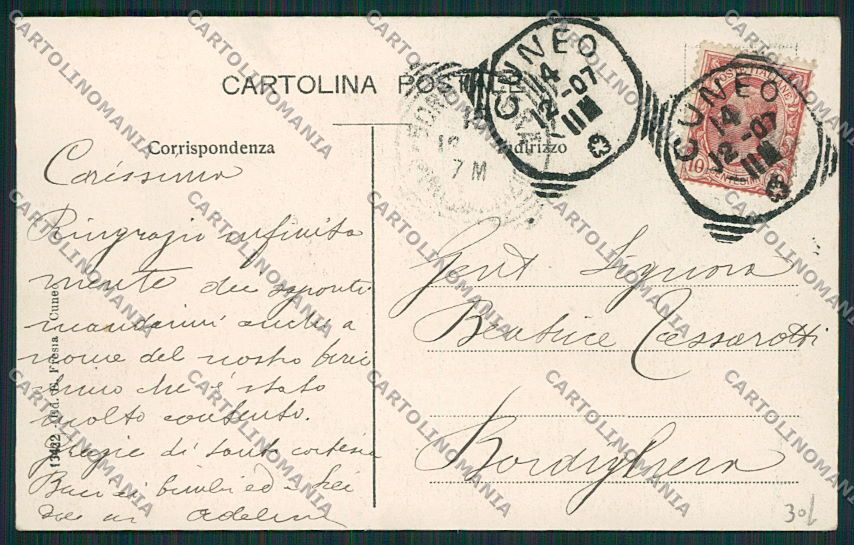 CARTOLINA POSTALE
Corrispondenza
Indirizzo
CUNEO
14
12-07
11M
CUNEO
14
12-07
11M
7M
10
Carissima
Ringrazio infinita
mente dei
mandarmi anche a
nome del nostro
mino che è stato
molto contento.
Grazie di
Baci ai bimbi ed a Lei
Adelina
Gent. Signora
Beatrice Tassarotti
Bordighera
13422 Ed. E. Fresia Cuneo
30/
CARTOLINOMANIA